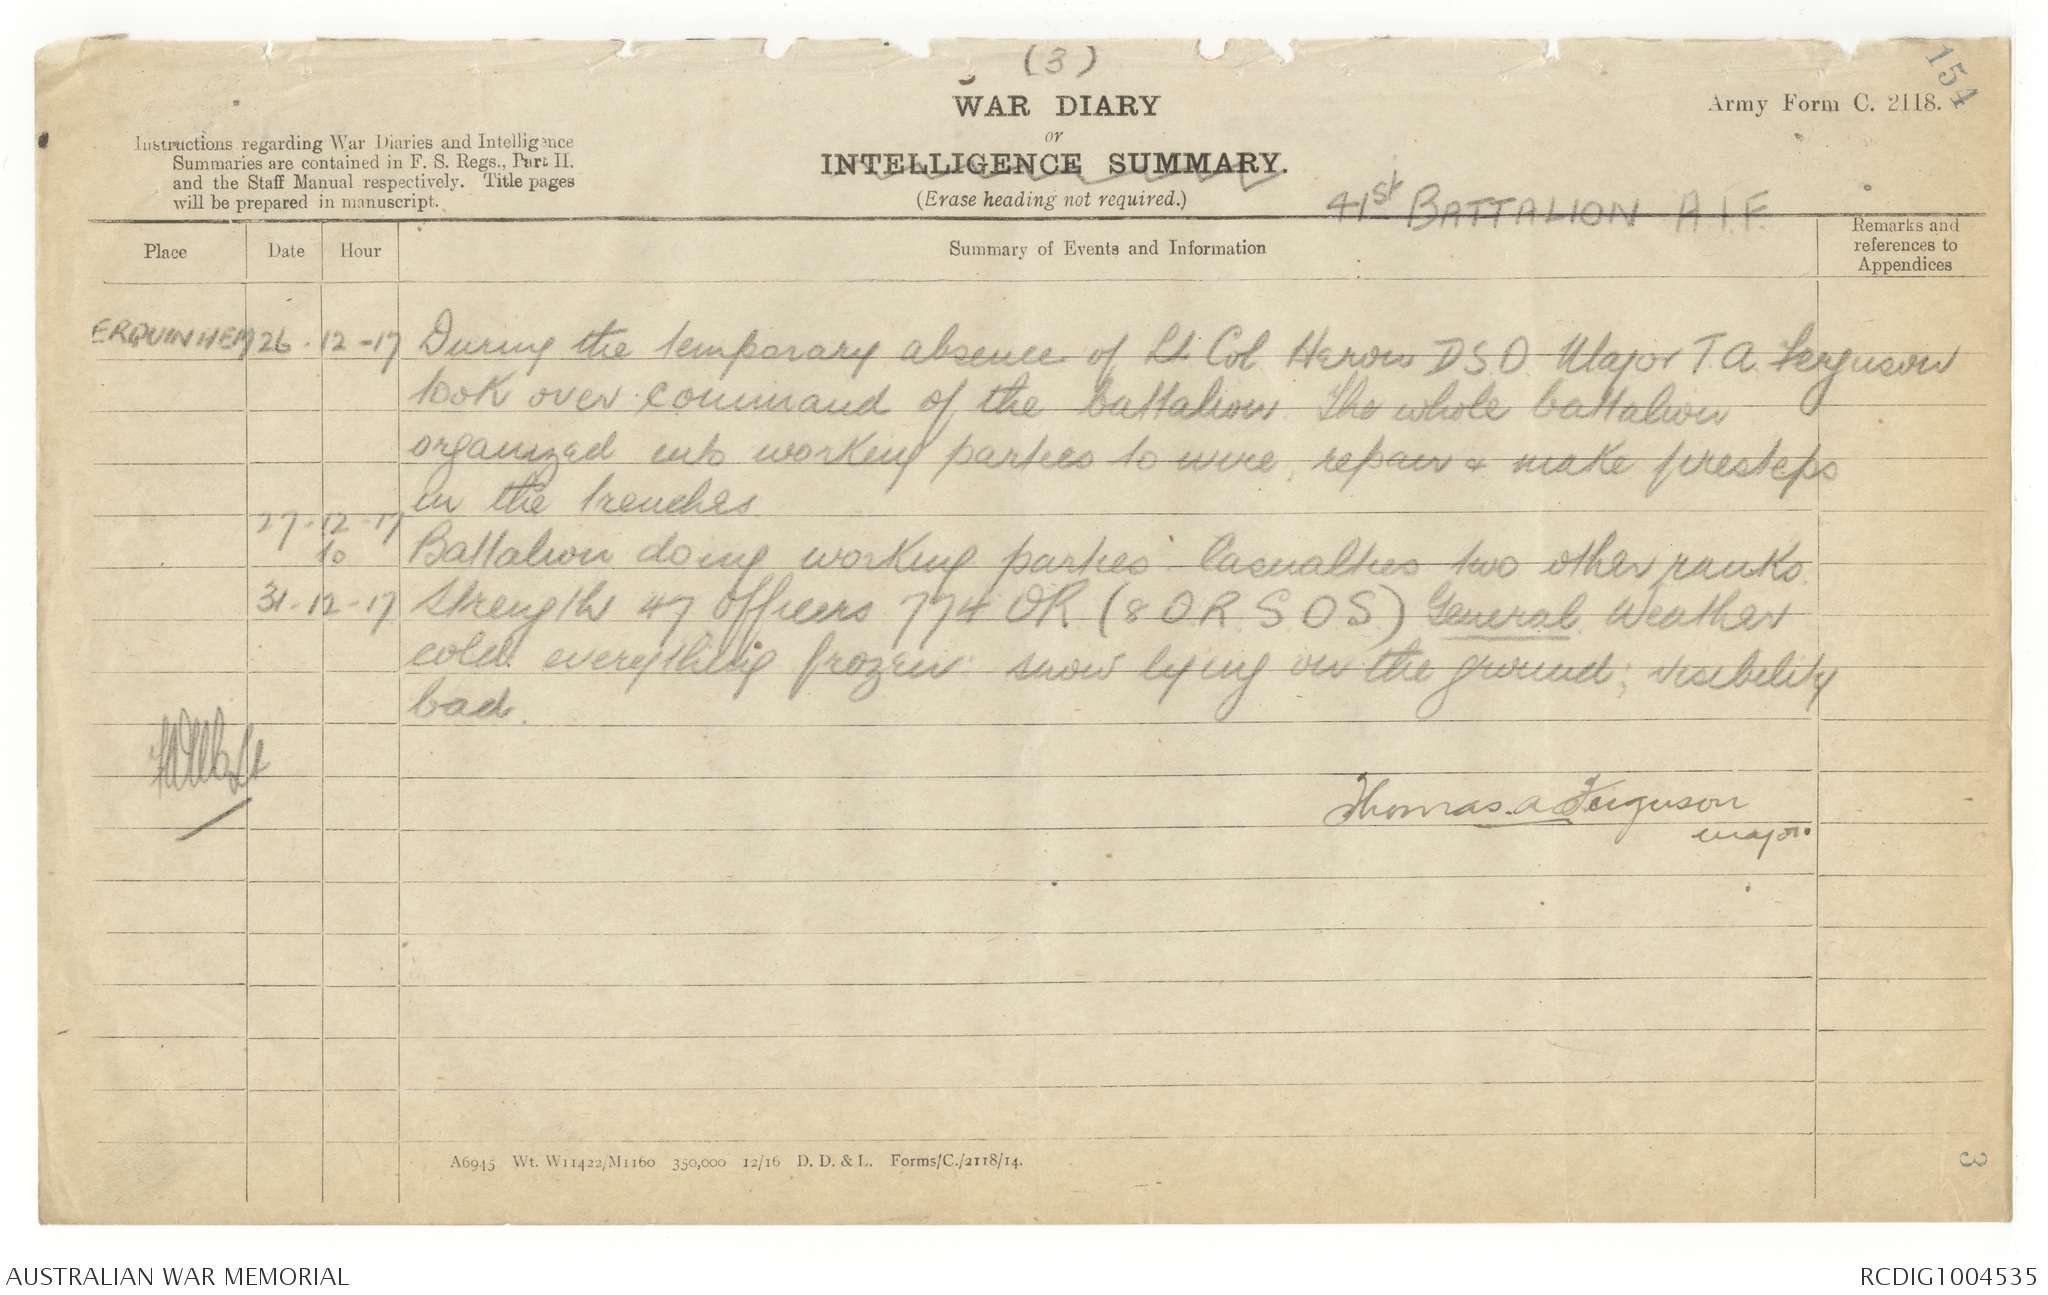 (3)
154
WAR DIARY
or
INTELLIGENCE SUMMARY.
(Erase heading not required.)
Army Form C. 2118.
Instructions regarding War Diaries and Intelligence
Summaries are contained in F. S. Regs., Part II.
and the Staff Manual respectively. Title pages
will be prepared in manuscript.
41st BATTALION A.I.F.
Place Date Hour Summary of Events and Information Remarks and
references to
Appendices
ERQUINHEM 26-12-17 During the temporary absence of Lt Col Heron DSO Major T.A. Ferguson
took over command of the battalion. The whole battalion
organized into working parties to wire, repair & make firesteps
in the trenches.
27-12-17
to Battalion doing working parties Casualties two other ranks.
31-12-17 Strength 47 Officers 774 OR (8 OR SOS) General Weather
cold everything frozen snow lying on the ground; visibility
bad.
Thomas. A Ferguson
major.
A6945 Wt. W11422/M1160 350,000 12/16 D. D. & L. Forms/C./2118/14.
3
AUSTRALIAN WAR MEMORIAL
RCDIG1004535